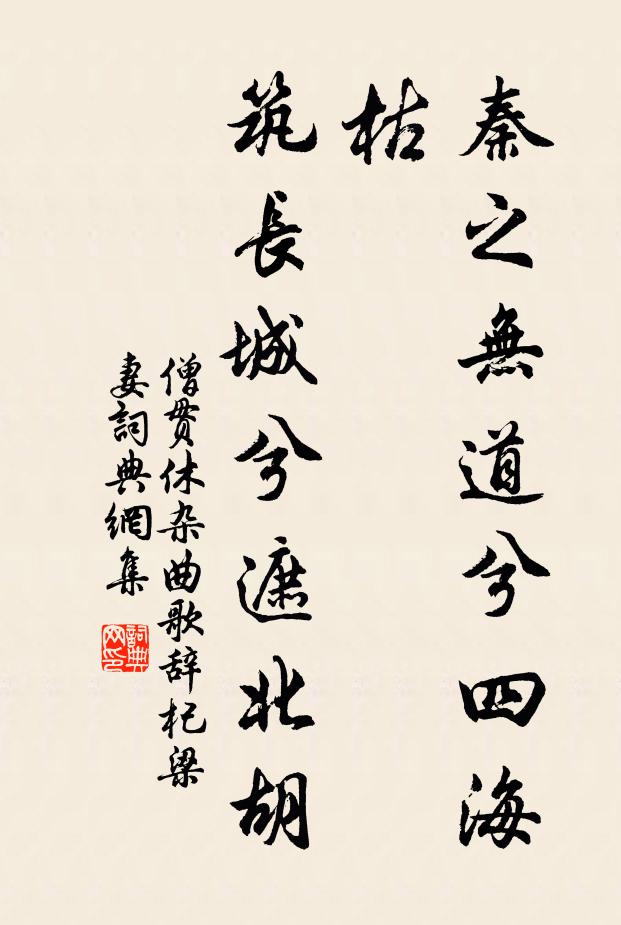 秦之無道兮四海
枯
筑長城兮遮北胡
僧贯休杂曲歌辞杞梁
妻詞典網集
詞典网印